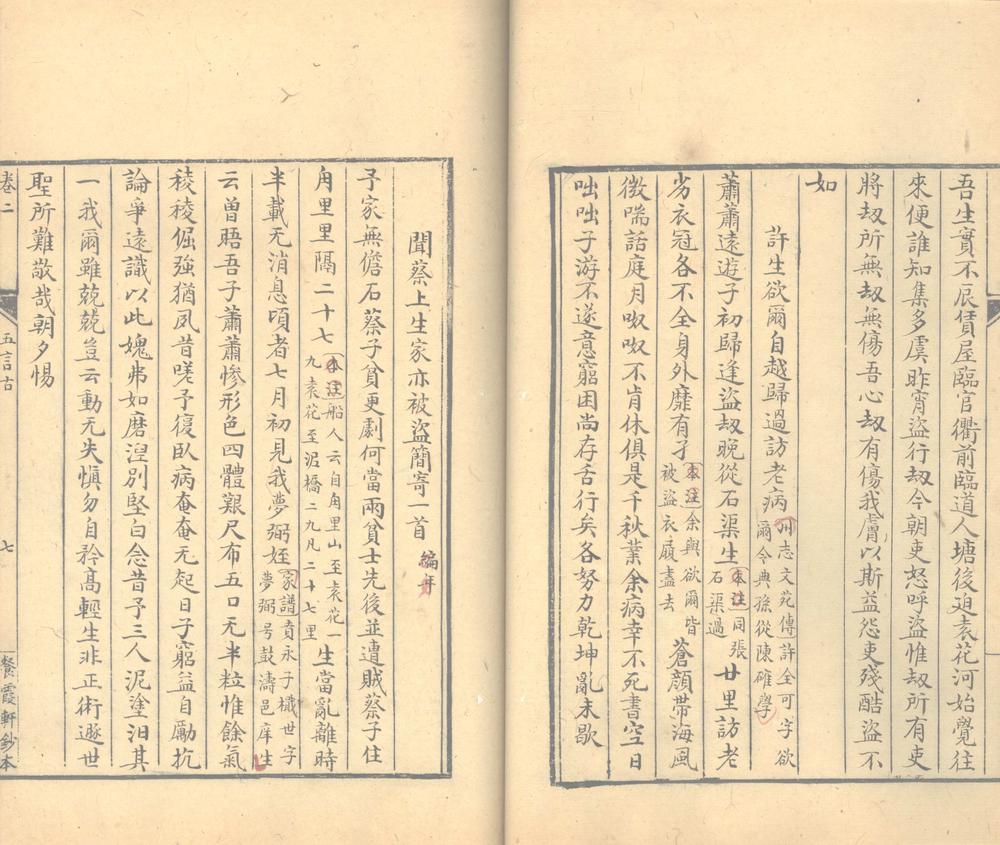 吾生實不辰賃屋臨官衢前臨道人塘後迫袁花河始覺往
來便誰知集多虞昨宵盜行刼今朝吏怒呼盜惟刼所有吏
將刼所無刼無傷吾心刼有傷我膚以斯益怨吏殘酷盜不
如
許生欲爾自越歸過訪老病州志文苑傳許全可字欲
爾令典孫從陳確學
蕭蕭遠遊子初歸逢盜刼晚從石渠生本注同張
石渠過廿里訪老
劣衣冠各不全身外靡有孑本注余與欲爾皆
被盜衣履盡去蒼顏帶海風
微喘話庭月呶呶不肯休俱是千秋業余病幸不死書空日
咄咄子游不遂意窮困尚存舌行矣各努力乾坤亂未歇
聞蔡上生家亦被盜簡寄一首編年
予家無儋石蔡子貧更劇何當兩貧士先後並遭賊蔡子住
角里里隔二十七本注船人云自角里山至袁花一
九袁花至泥橋二九凡二十七里生當亂離時
半載无消息頃者七月初見我夢弼姪家譜賁永子櫶世字
夢弼号鼓濤邑庠生
云曾晤吾子蕭蕭慘形色四體艱尺布五口无半粒惟餘氣
稜稜倔強猶夙昔嗟予復臥病奄奄无起日子窮益自勵抗
論爭遠識以此媿弗如磨湼別堅白念昔予三人泥塗汨其
一我爾雖兢兢豈云動无失愼勿自矜高輕生非正術遯世
聖所難敬哉朝夕惕
卷二
五言古
七
餐霞軒鈔本